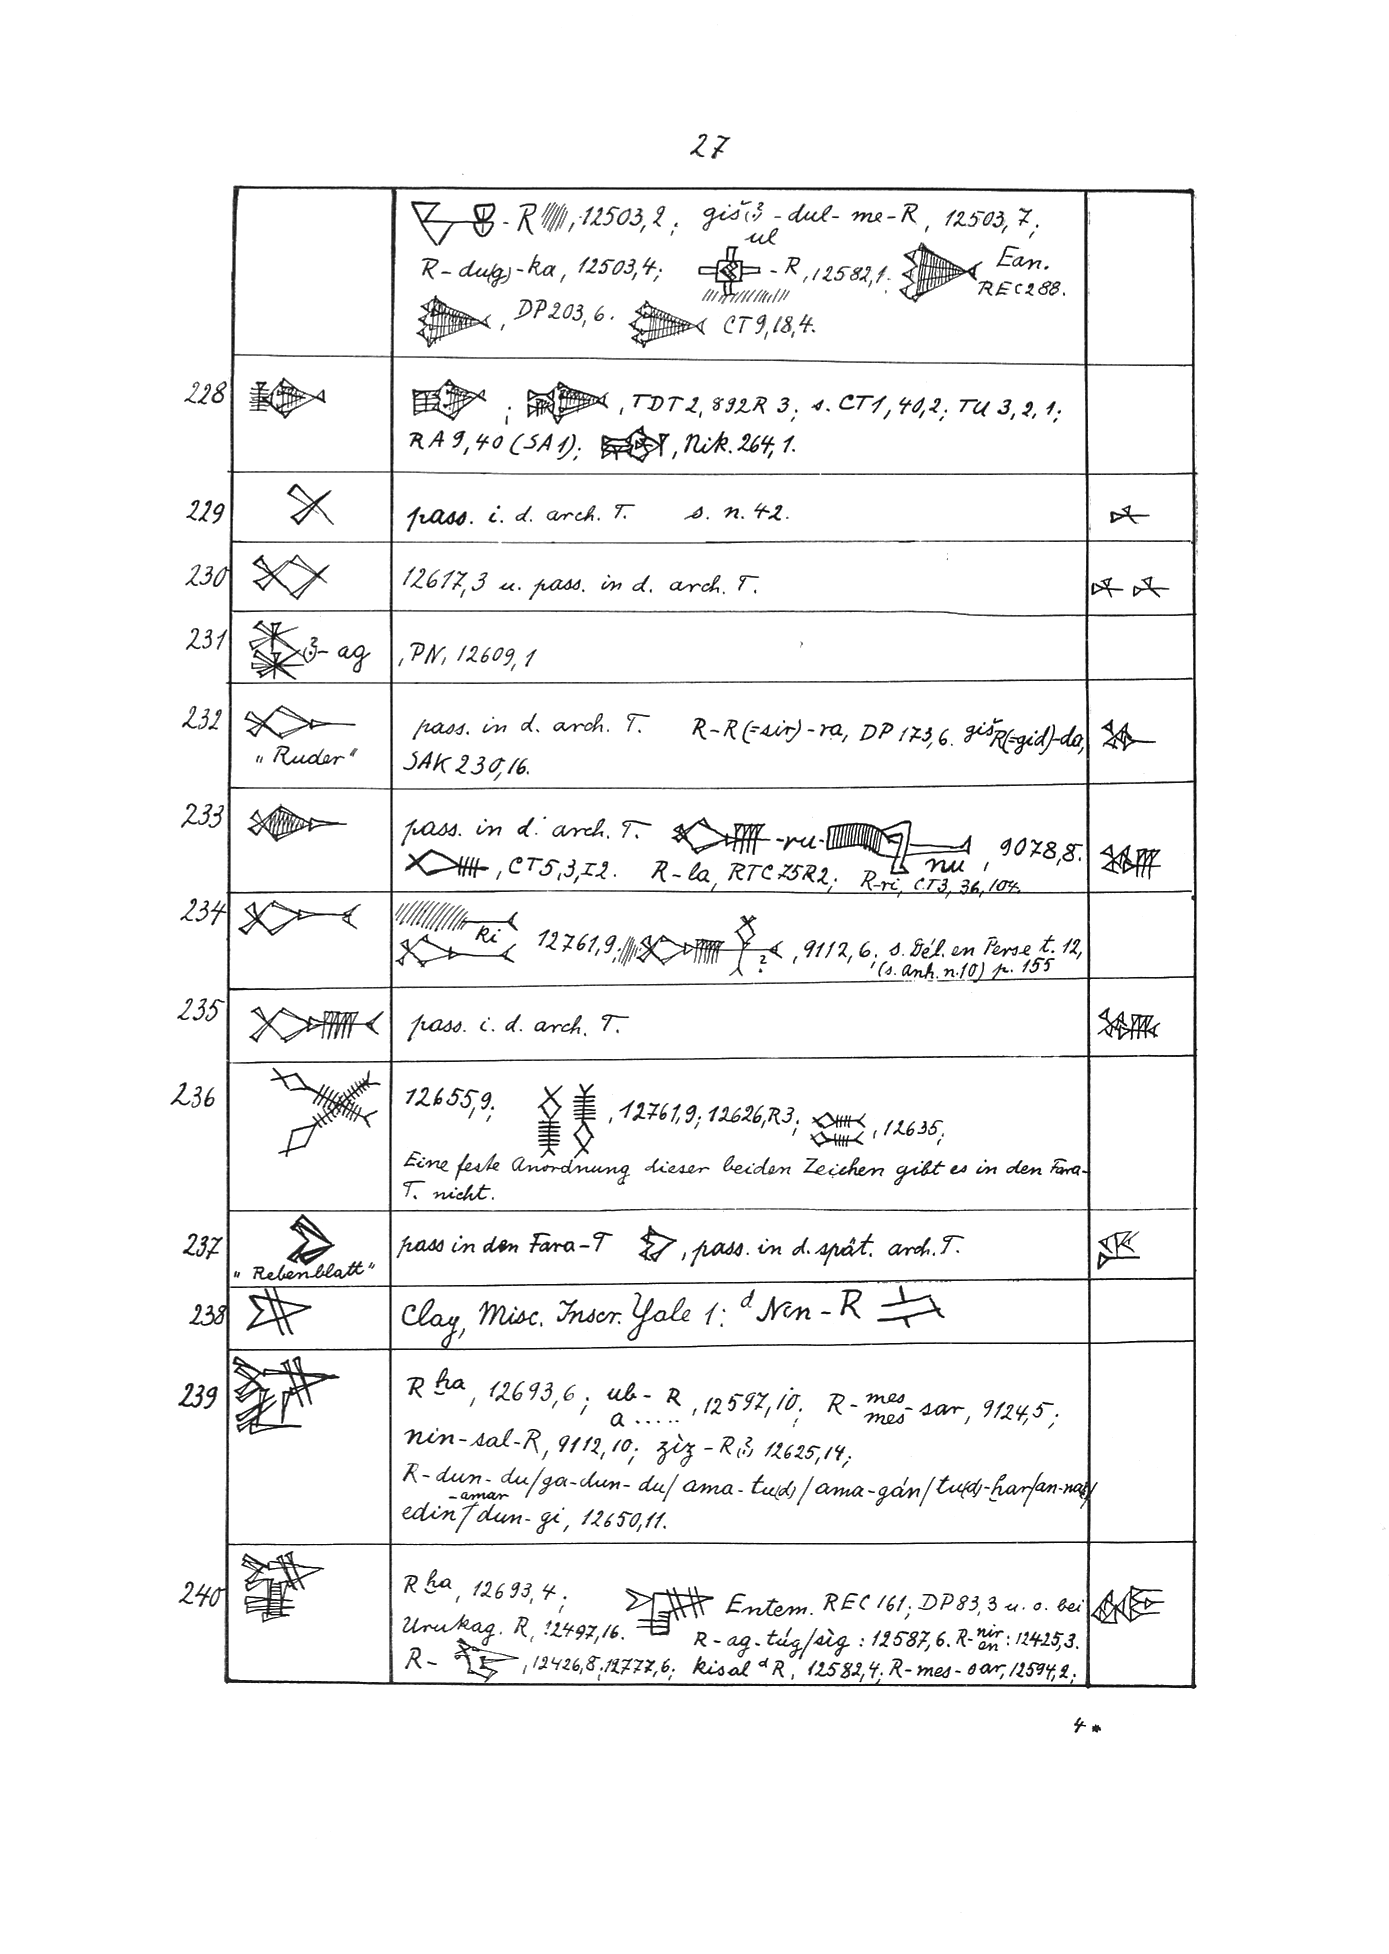 27
- R , 12503,2; giš(?) - dul - me - R, 12503,7;
ul
R - du(g) - ka, 12503,4; - R, 12582,1. Ean.
REC 288.
, DP 203,6. CT 9,18,4.
228 ; , TDT 2, 892 R 3; s. CT 1, 40,2; TU 3,2,1;
RA 9,40 (SA 1); , Nik. 264,1.
229 pass. i. d. arch. T. s. n. 42.
230 12617,3 u. pass. in d. arch. T.
231 (?) - ag , PN, 12609,1
232 pass. in d. arch. T. R-R (=sir)-ra, DP 173,6. giš R(=gid)-da,
„Ruder“ SAK 230,16.
233 pass. in d. arch. T. -ru- nu, 9078,8.
, CT 5,3,I2. R-la, RTC 75 R 2; R-ri, CT 3, 36, 104.
234 ki 12761,9; ? , 9112,6; s. Dél. en Perse t. 12,
(s. Anh. n. 10) p. 155
235 pass. i. d. arch. T.
236 12655,9; , 12761,9; 12626,R3; , 12635;
Eine feste Anordnung dieser beiden Zeichen gibt es in den Fara-
T. nicht.
237 pass in den Fara-T , pass. in d. spät. arch. T.
„Rebenblatt“
238 Clay, Misc. Inscr. Yale 1: d Nin - R
239 R ḫa, 12693,6; ub - R, 12597,10; R - mes mes - sar, 9124,5;
a .....
nin-sal-R, 9112,10; zìz - R(?), 12625,14;
R-dun-du/ga-dun-du/ama-tu(d)/ama-gán/tu(d)-ḫar/an-na/
edin-amar/dun-gi, 12650,11.
240 R ḫa, 12693,4; Entem. REC 161; DP 83,3 u. o. bei
Urukag. R, 12497,16. R-ag-túg/sìg: 12587,6. R-nir en: 12425,3.
R- , 12426,8; 12777,6; kisal d R, 12582,4; R-mes-sar, 12594,2;
4*